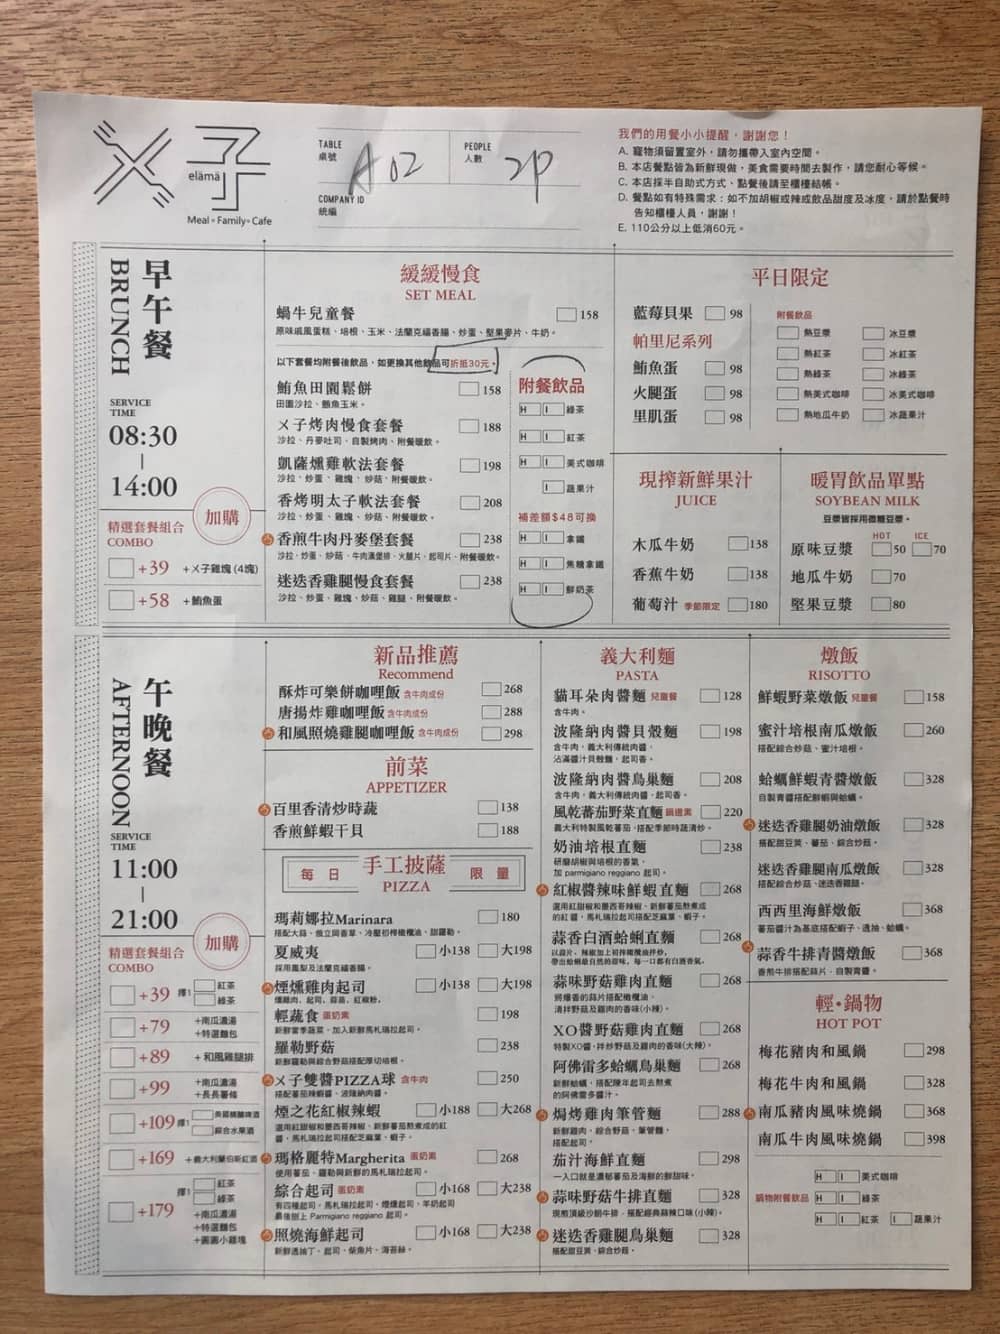 乂子
elämä
Meal。Family。Cafe
TABLE 桌號 A02
PEOPLE 人數 2P
COMPANY ID 統編
我們的用餐小小提醒，謝謝您！
A. 寵物須留置室外，請勿攜帶入室內空間。
B. 本店餐點皆為新鮮現做，美食需要時間去製作，請您耐心等候。
C. 本店採半自助式方式、點餐後請至櫃檯結帳。
D. 餐點如有特殊需求：如不加胡椒或辣或飲品甜度及冰度，請於點餐時
告知櫃檯人員，謝謝！
E. 110公分以上低消60元。
早午餐
BRUNCH
SERVICE TIME
08:30
14:00
精選套餐組合
COMBO
加購
+39 +乂子雞塊 (4塊)
+58 +鮪魚蛋
緩緩慢食
SET MEAL
蝸牛兒童餐 158
原味戚風蛋糕、培根、玉米、法蘭克福香腸、炒蛋、堅果麥片、牛奶。
以下套餐均附餐後飲品，如更換其他飲品可折抵30元。
鮪魚田園鬆餅 158
田園沙拉、鮪魚玉米。
乂子烤肉慢食套餐 188
沙拉、丹麥吐司、自製烤肉、附餐暖飲。
凱薩燻雞軟法套餐 198
沙拉、炒蛋、雞塊、炒菇、附餐暖飲。
香烤明太子軟法套餐 208
沙拉、炒蛋、雞塊、炒菇、附餐暖飲。
香煎牛肉丹麥堡套餐 238
沙拉、炒蛋、炒菇、牛肉漢堡排、火腿片、起司片、附餐暖飲。
迷迭香雞腿慢食套餐 238
沙拉、炒蛋、雞塊、炒菇、雞腿、附餐暖飲。
附餐飲品
H I 綠茶
H I 紅茶
H I 美式咖啡
I 蔬果汁
補差額$48可換
H I 拿鐵
H I 焦糖拿鐵
H I 鮮奶茶
平日限定
藍莓貝果 98
帕里尼系列
鮪魚蛋 98
火腿蛋 98
里肌蛋 98
附餐飲品
熱豆漿 冰豆漿
熱紅茶 冰紅茶
熱綠茶 冰綠茶
熱美式咖啡 冰美式咖啡
熱地瓜牛奶 冰蔬果汁
現搾新鮮果汁
JUICE
木瓜牛奶 138
香蕉牛奶 138
葡萄汁 季節限定 180
暖胃飲品單點
SOYBEAN MILK
豆漿皆採用微糖豆漿。
HOT ICE
原味豆漿 50 70
地瓜牛奶 70
堅果豆漿 80
午晚餐
AFTERNOON
SERVICE TIME
11:00
21:00
精選套餐組合
COMBO
加購
+39 擇1 紅茶 綠茶
+79 +南瓜濃湯 +特選麵包
+89 +和風雞腿排
+99 +南瓜濃湯 +長長薯條
+109 擇1 綜合水果酒
+169 +義大利蘭伯斯紅酒
+179 擇1 紅茶 綠茶
+南瓜濃湯
+特選麵包
+圓圓小雞塊
新品推薦
Recommend
酥炸可樂餅咖哩飯 含牛肉成份 268
唐揚炸雞咖哩飯 含牛肉成份 288
和風照燒雞腿咖哩飯 含牛肉成份 298
前菜
APPETIZER
百里香清炒時蔬 138
香煎鮮蝦干貝 188
每日 手工披薩 限量
PIZZA
瑪莉娜拉Marinara 180
搭配大蒜、俄立岡香草、冷壓初榨橄欖油、甜羅勒。
夏威夷 小138 大198
採用鳳梨及法蘭克福香腸。
煙燻雞肉起司 小138 大198
燻雞肉、起司、蒜苗、紅椒粉。
輕蔬食 蛋奶素 198
新鮮當季蔬菜，加入新鮮馬札瑞拉起司。
羅勒野菇 238
新鮮羅勒與綜合野菇搭配厚切培根。
乂子雙醬PIZZA球 含牛肉 250
搭配蕃茄辣椒醬、波隆納肉醬。
煙之花紅椒辣蝦 小188 大268
選用紅甜椒和墨西哥辣椒、新鮮蕃茄熬煮成的紅
醬，馬札瑞拉起司搭配芝麻葉、蝦子。
瑪格麗特Margherita 蛋奶素 268
使用蕃茄、羅勒與新鮮的馬札瑞拉起司。
綜合起司 蛋奶素 小168 大238
有四種起司，馬札瑞拉起司、煙燻起司、羊奶起司
最後刨上 Parmigiano reggiano 起司。
照燒海鮮起司 小168 大238
新鮮透抽丁、起司、柴魚片、海苔絲。
義大利麵
PASTA
貓耳朵肉醬麵 兒童餐 128
含牛肉。
波隆納肉醬貝殼麵 198
含牛肉，義大利傳統肉醬，
沾滿醬汁貝殼麵，起司香。
波隆納肉醬鳥巢麵 208
含牛肉，義大利傳統肉醬，起司香。
風乾蕃茄野菜直麵 鍋邊素 220
義大利特製風乾蕃茄，搭配季節時蔬清炒。
奶油培根直麵 238
研磨胡椒與培根的香氣，
加 parmigiano reggiano 起司。
紅椒醬辣味鮮蝦直麵 268
選用紅甜椒和墨西哥辣椒、新鮮蕃茄熬煮成
的紅醬，馬札瑞拉起司搭配芝麻葉、蝦子。
蒜香白酒蛤蜊直麵 268
以蒜片、辣椒加上初榨橄欖油拌炒，
帶出蛤蠣最自然的甜味，每一口都有白酒香氣。
蒜味野菇雞肉直麵 268
將爆香的蒜片搭配橄欖油，
清拌野菇及雞肉的香味(小辣)。
XO醬野菇雞肉直麵 268
特製XO醬，拌炒野菇及雞肉的香味(大辣)。
阿佛雷多蛤蠣鳥巢麵 268
新鮮蛤蠣，搭配陳年起司去熬煮
的阿佛雷多醬汁。
焗烤雞肉筆管麵 288
新鮮雞肉、綜合野菇、筆管麵，
搭配起司。
茄汁海鮮直麵 298
一入口就是濃郁蕃茄及海鮮的鮮甜味。
蒜味野菇牛排直麵 328
現煎頂級沙朗牛排，搭配經典蒜辣口味(小辣)。
迷迭香雞腿鳥巢麵 328
搭配甜豆莢、綜合炒菇。
燉飯
RISOTTO
鮮蝦野菜燉飯 兒童餐 158
蜜汁培根南瓜燉飯 260
搭配綜合炒菇、蜜汁培根。
蛤蠣鮮蝦青醬燉飯 328
自製青醬搭配鮮蝦與蛤蠣。
迷迭香雞腿奶油燉飯 328
搭配甜豆莢、蕃茄、綜合炒菇。
迷迭香雞腿南瓜燉飯 328
搭配綜合炒菇、迷迭香雞腿。
西西里海鮮燉飯 368
蕃茄醬汁為基底搭配蝦子、透抽、蛤蠣。
蒜香牛排青醬燉飯 368
香煎牛排搭配蒜片，自製青醬。
輕•鍋物
HOT POT
梅花豬肉和風鍋 298
梅花牛肉和風鍋 328
南瓜豬肉風味燒鍋 368
南瓜牛肉風味燒鍋 398
鍋物附餐飲品
H I 美式咖啡
H I 綠茶
H I 紅茶 I 蔬果汁